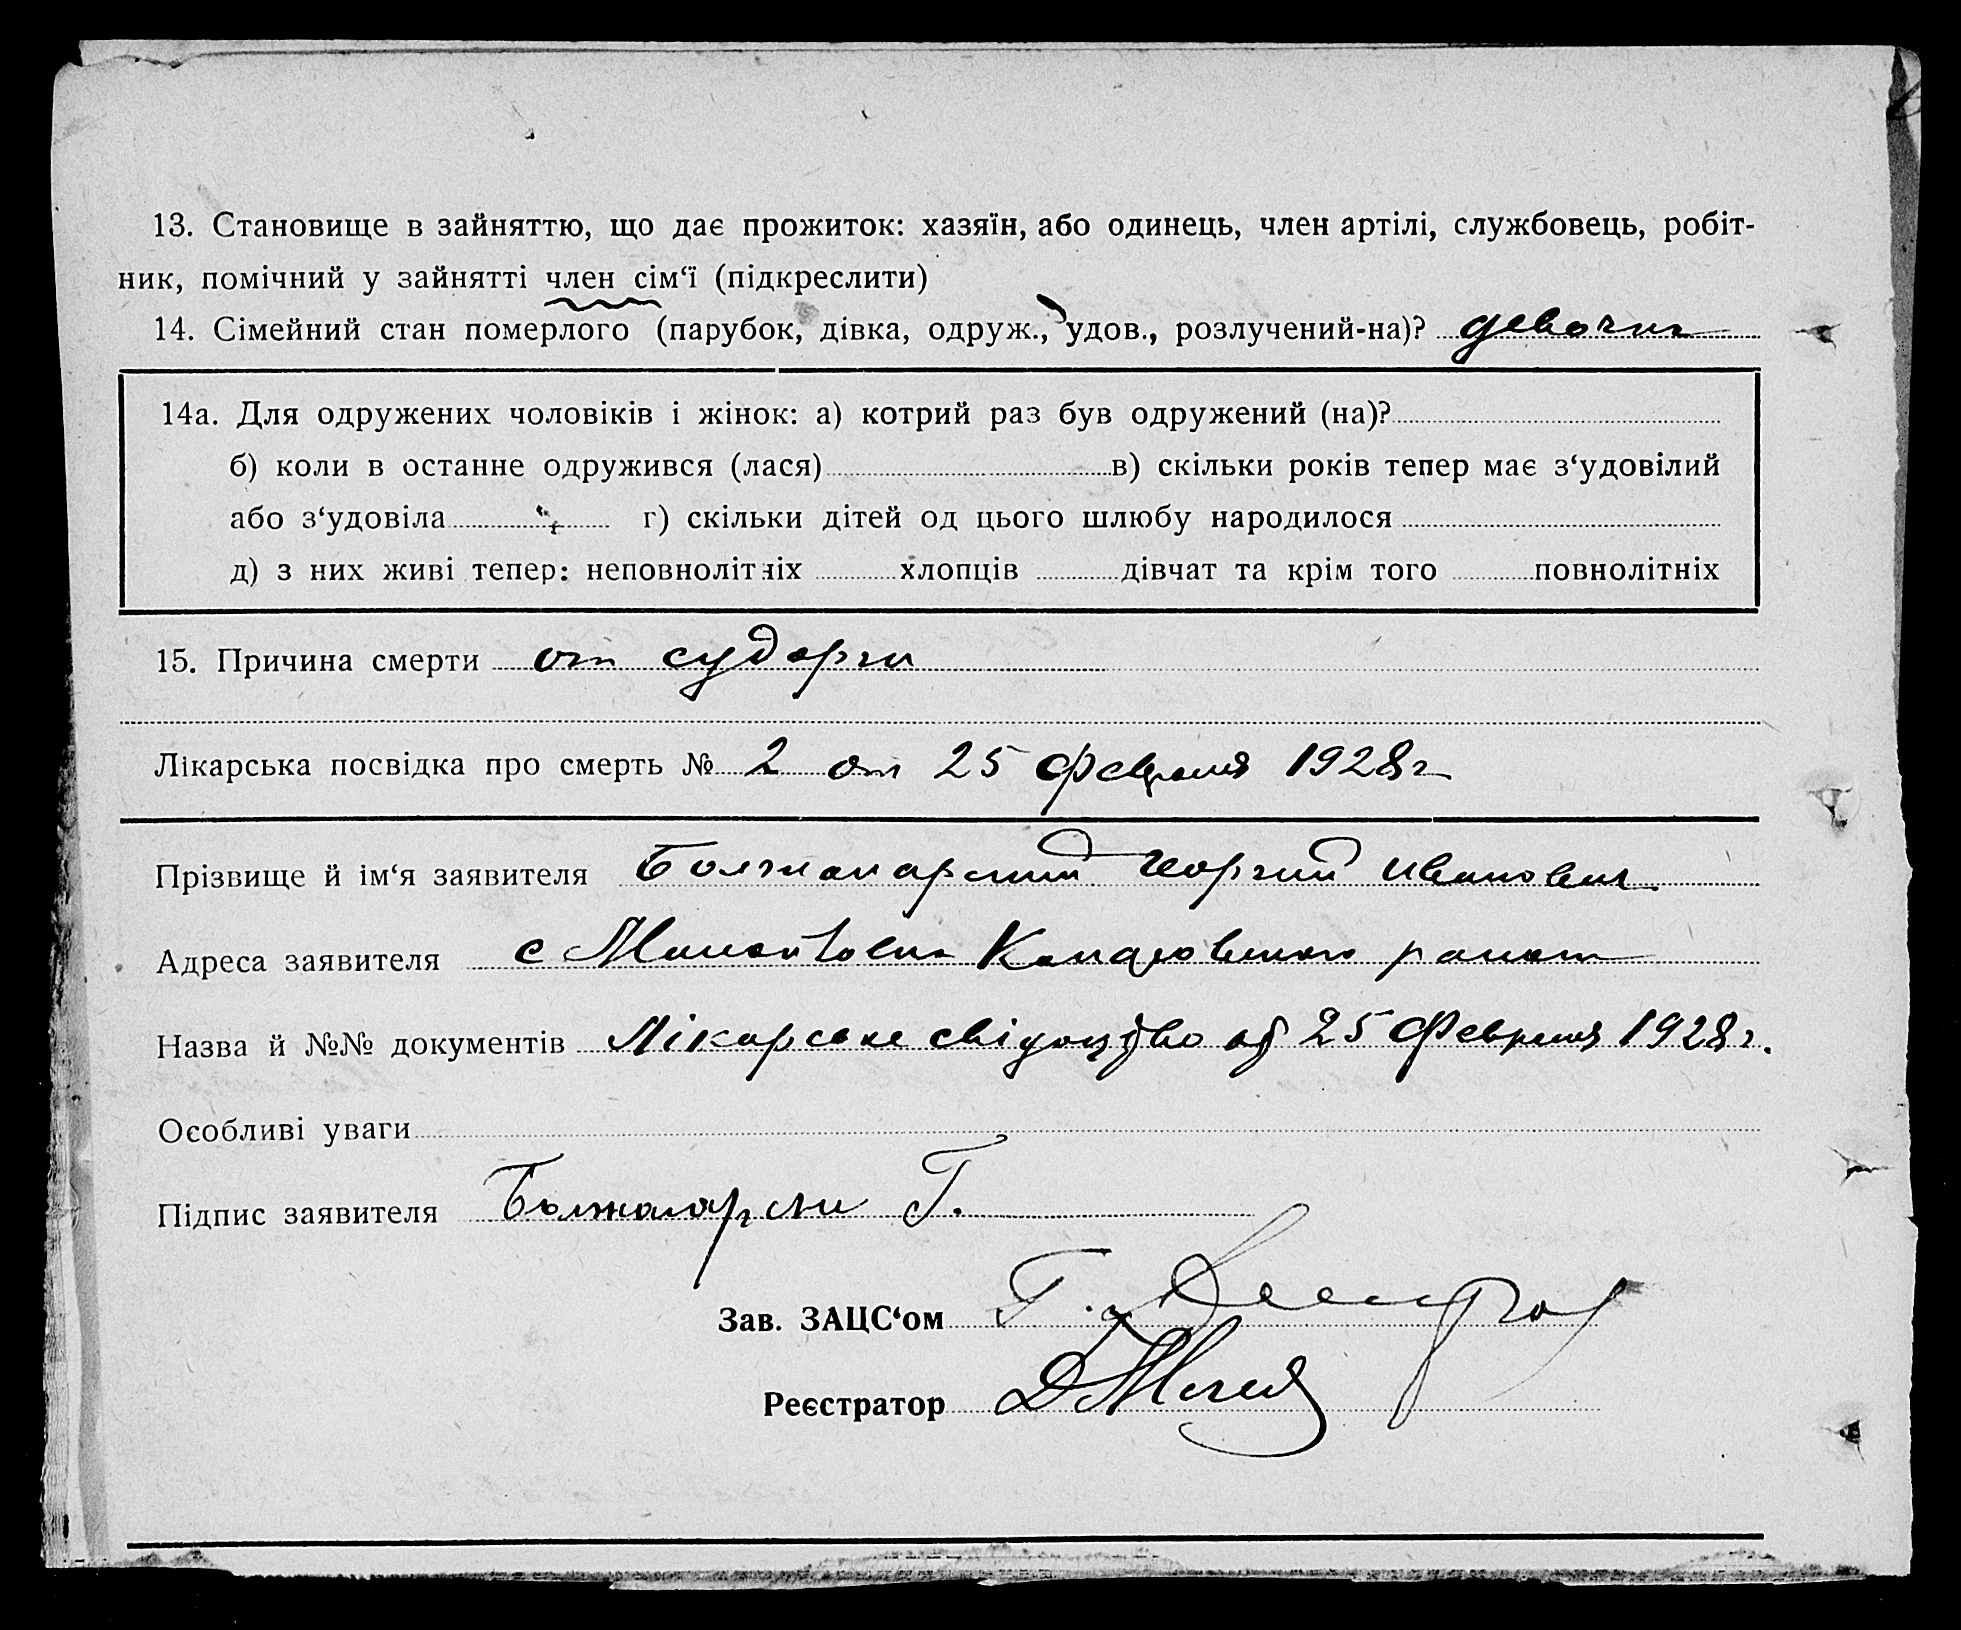 13. Становище в зайняттю, що дає прожиток: хазяїн, або одинець, член артілі, службовець, робіт-
ник, помічний у зайнятті член сім‘ї (підкреслити)
14. Сімейний стан померлого (парубок, дівка, одруж., удов., розлучений-на)?
14а. Для одружених чоловіків і жінок: а) котрий раз був одружений (на)?
б) коли в останне одружився (лася) в) скільки років тепер має з‘удовілий
або з‘удовіла г) скільки дітей од цього шлюбу народилося
д) з них живі тепер: неповнолітніх хлопців дівчат та крім того повнолітніх
15. Причина смерти от судорги
Лікарська посвідка про смерть № 2 от 25 февраля 1928 г
Прізвище й ім‘я заявителя Георгий Иванович
Адреса заявителя с
Назва й №№ документів Лікарське свідоцтво від 25 Февраля 1928 г.
Особливі уваги
Підпис заявителя Г.
Зав. ЗАЦС‘ом
Реєстратор